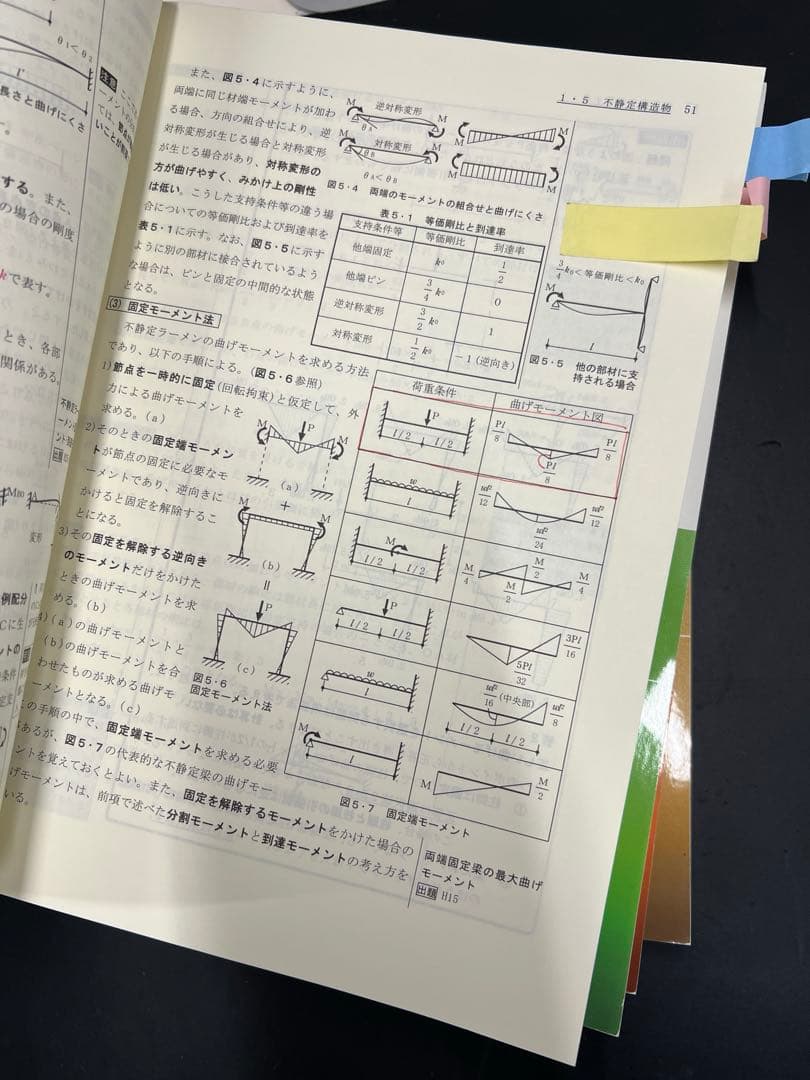 1・5 不静定構造物 51
また、図5・4に示すように、
両端に同じ材端モーメントが加わ
る場合、方向の組合せにより、逆
対称変形が生じる場合と対称変形
が生じる場合があり、対称変形の
方が曲げやすく、みかけ上の剛性
は低い。こうした支持条件等の違う場
合についての等価剛比および到達率を
表5・1に示す。なお、図5・5に示す
ように別の部材に接合されているよう
な場合は、ピンと固定の中間的な状態
となる。
M 逆対称変形 M
θA
M 対称変形 M
θB
θA<θB
M M
M M
図5・4 両端のモーメントの組合せと曲げにくさ
表5・1 等価剛比と到達率
支持条件等 等価剛比 到達率
他端固定 k0 1/2
他端ピン 3/4 k0 0
逆対称変形 3/2 k0 1
対称変形 1/2 k0 −1(逆向き)
3/4 k0<等価剛比<k0
M
l
図5・5 他の部材に支
持される場合
(3) 固定モーメント法
不静定ラーメンの曲げモーメントを求める方法
であり、以下の手順による。(図5・6参照)
1)節点を一時的に固定(回転拘束)と仮定して、外
力による曲げモーメントを
求める。(a)
2)そのときの固定端モーメン
トが節点の固定に必要なモ
ーメントであり、逆向きに
かけると固定を解除するこ
とになる。
3)その固定を解除する逆向き
のモーメントだけをかけた
ときの曲げモーメントを求
める。(b)
4)(a)の曲げモーメントと
(b)の曲げモーメントを合
わせたものが求める曲げモ
ーメントとなる。(c)
M P M
(a)
+
M M
(b)
=
P
(c)
図5・6
固定モーメント法
の手順の中で、固定端モーメントを求める必要
があるが、図5・7の代表的な不静定梁の曲げモー
ントを覚えておくとよい。また、固定を解除するモーメントをかけた場合の
げモーメントは、前項で述べた分割モーメントと到達モーメントの考え方を
いる。
荷重条件 曲げモーメント図
P l/2 l/2 Pl/8 Pl/8 Pl/8
w l wl²/12 wl²/12 wl²/24
M l/2 l/2 M/4 M/2 M/2 M/4
P l/2 l/2 3Pl/16 5Pl/32
w l wl²/16 (中央部) wl²/8 l/2 l/2
M l M M/2
図5・7 固定端モーメント
両端固定梁の最大曲げ
モーメント
出題 H15
θ1<θ2
l'
長さと曲げにく
す。
注意
する。また、
の場合の剛度
kで表す。
とき、各部
関係がある。
変形